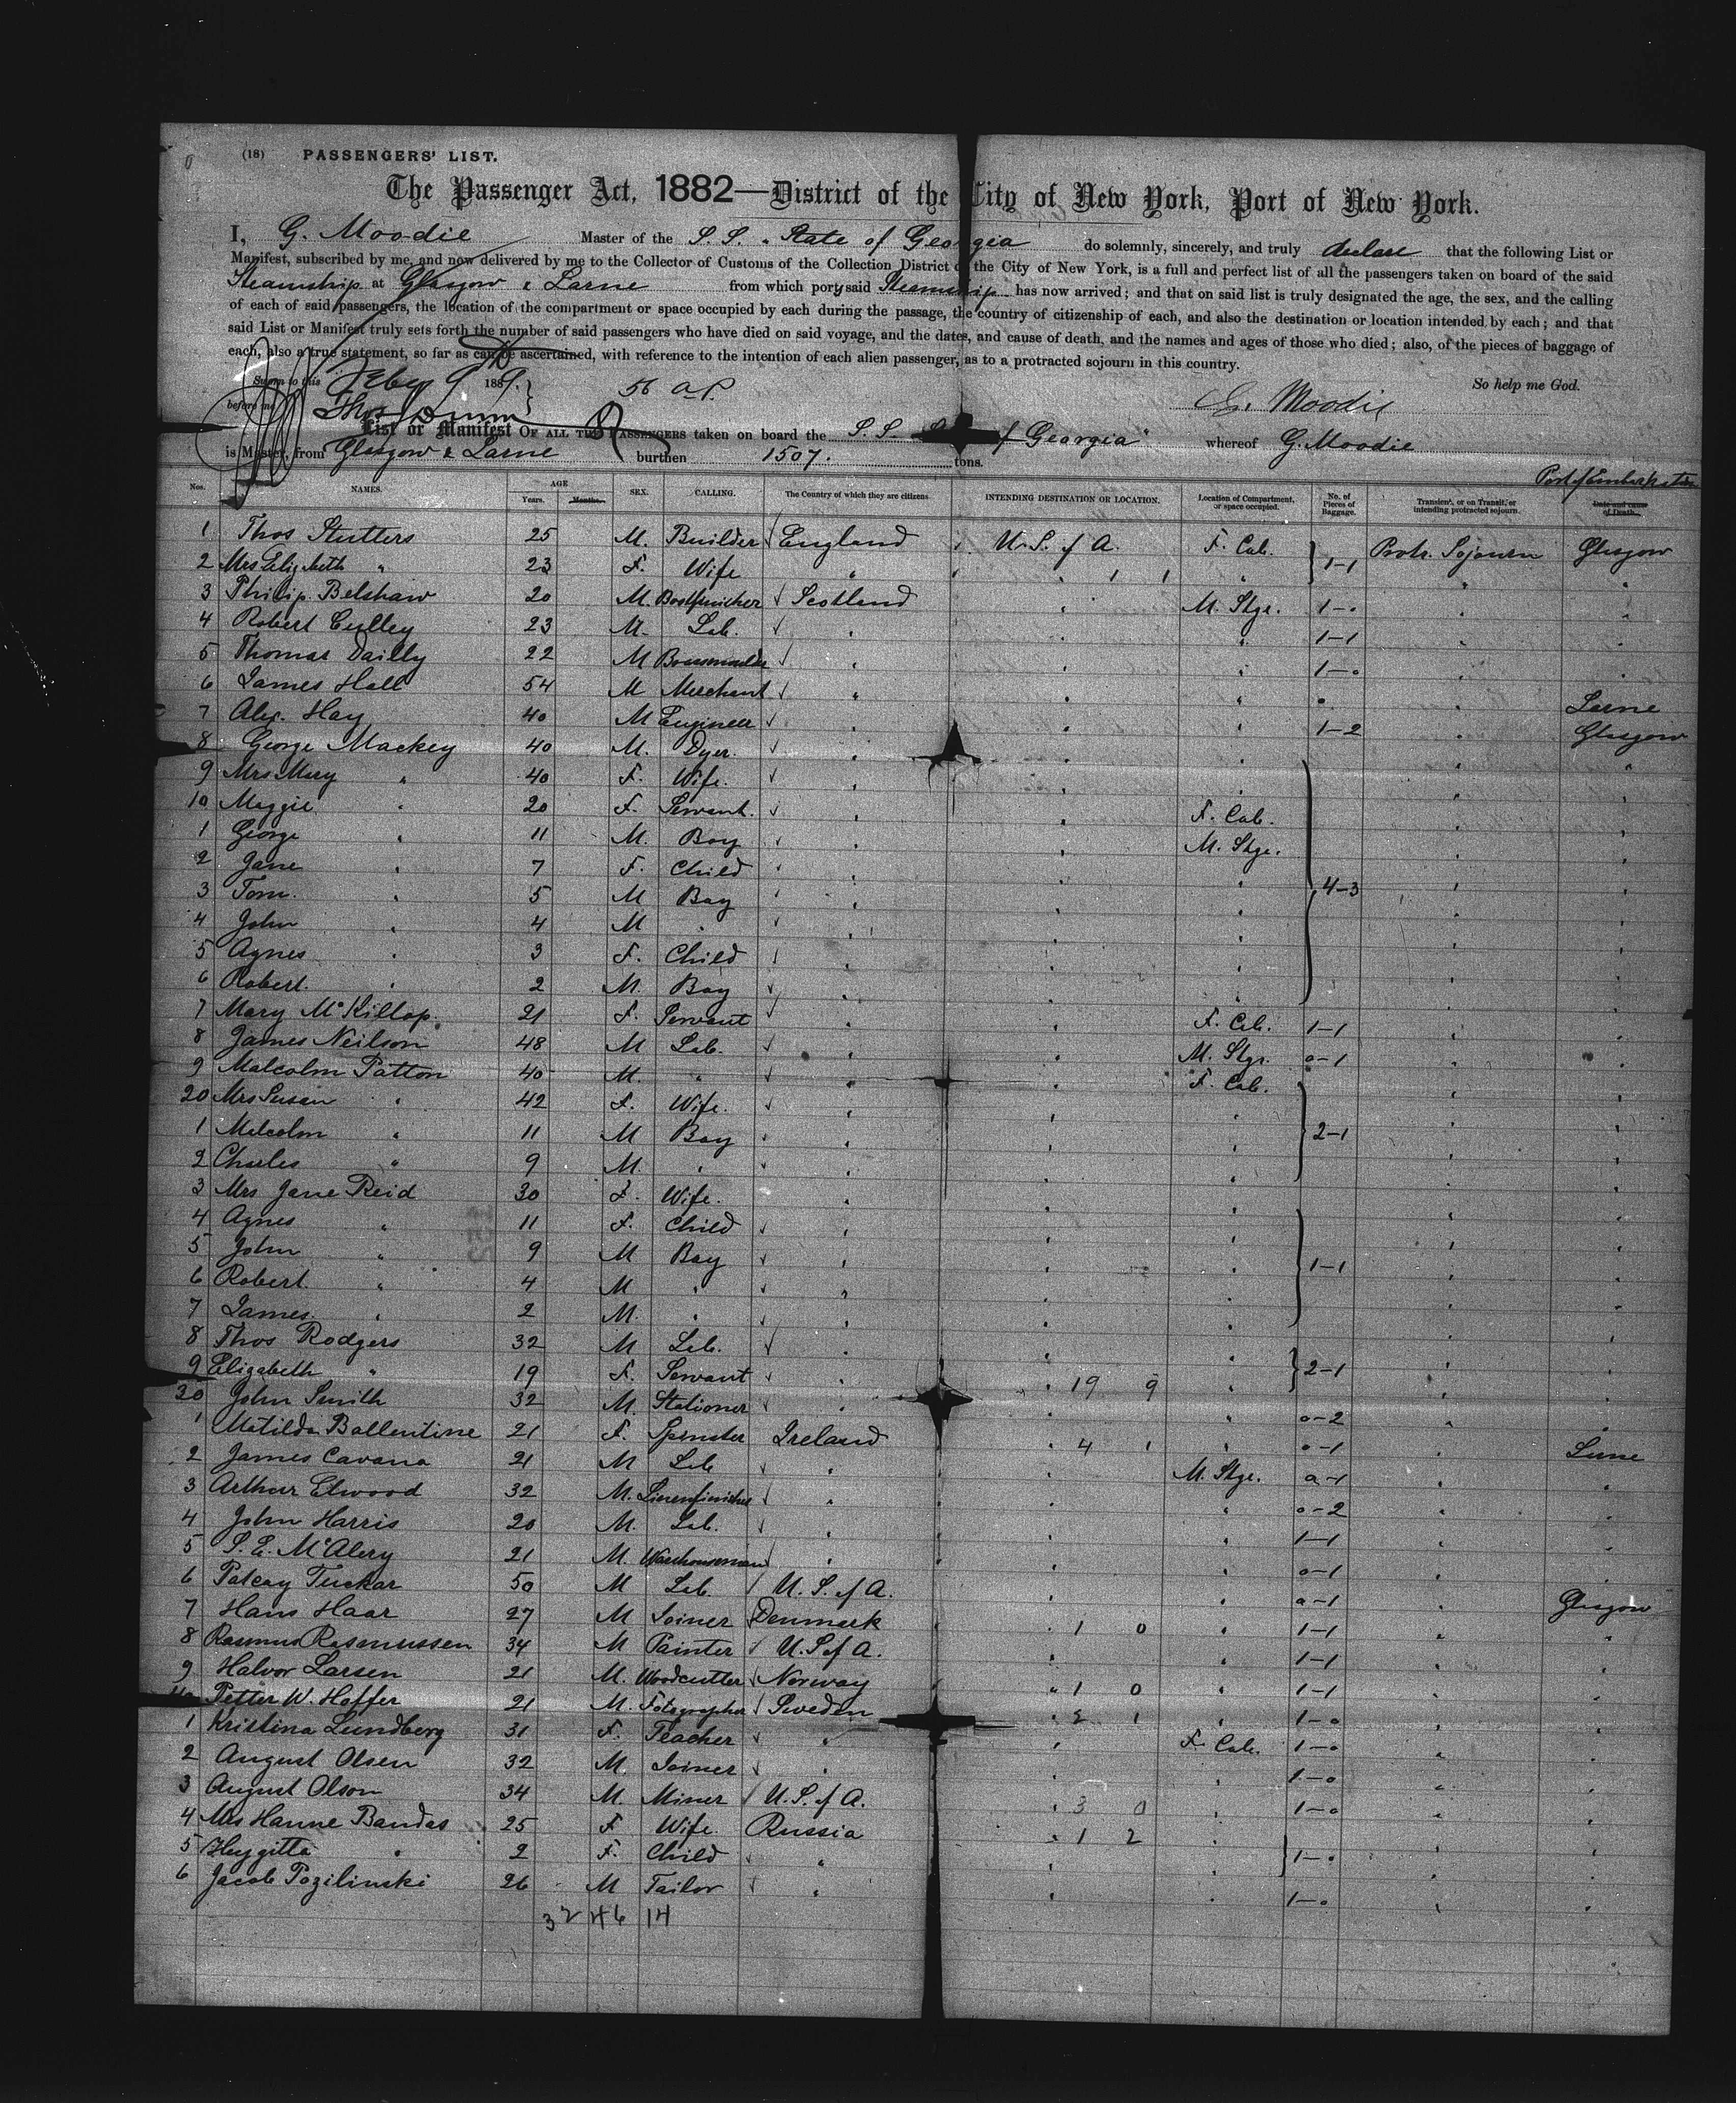 (18) PASSENGERS' LIST.
The Passenger Act, 1882—District of the City of New York, Port of New York.
I, G. Moodie Master of the S.S. "State of Georgia do solemnly, sincerely, and truly declare that the following List or
Manifest, subscribed by me, and now delivered by me to the Collector of Customs of the Collection District of the City of New York, is a full and perfect list of all the passengers taken on board of the said
Steamship at Glasgow & Larne from which ports said Steamship has now arrived; and that on said list is truly designated the age, the sex, and the calling
of each of said passengers, the location of the compartment or space occupied by each during the passage, the country of citizenship of each, and also the destination or location intended by each; and that
said List or Manifest truly sets forth the number of said passengers who have died on said voyage, and the dates, and cause of death, and the names and ages of those who died; also, of the pieces of baggage of
each, also a true statement, so far as can be ascertained, with reference to the intention of each alien passenger, as to a protracted sojourn in this country.
Sworn to this Feby 9th 1889. So help me God.
before me G. Moodie
List or Manifest OF ALL THE PASSENGERS taken on board the S.S. of Georgia" whereof G. Moodie
is Master, from Glasgow & Larne burthen 1507. tons.
Port of Embarkation
Nos. NAMES. AGE Years. Months. SEX. CALLING. The Country of which they are citizens INTENDING DESTINATION OR LOCATION. Location of Compartment, or space occupied. No. of Pieces of Baggage. Transient, or on Transit, or intending protracted sojourn. Date and cause of Death.
1 Thos Stutters 25 M. Builder England U.S. of A. F. Cab. Protr. Sojourn Glasgow
2 Mrs Elizabeth " 23 F. Wife " " 1-1 " "
3 Philip Belshaw 20 M. Bootfinisher Scotland " M. Stge. 1-0 " "
4 Robert Culley 23 M. Lab. " " " 1-1 " "
5 Thomas Dailly 22 M " " " 1-0 " "
6 James Hall 54 M Merchant " " " 0 " Larne
7 Alex. Hay 40 M Engineer " " " 1-2 " Glasgow
8 George Mackey 40 M. Dyer. " " " " "
9 Mrs Mary " 40 F. Wife. " " " " "
10 Maggie " 20 F. Servant. " " F. Cab. " "
1 George " 11 M. Boy " " M. Stge. " "
2 Jane " 7 F. Child " " " " "
3 Tom. " 5 M Boy " " " 4-3 " "
4 John " 4 M " " " " " "
5 Agnes " 3 F. Child " " " " "
6 Robert. " 2 M. Boy " " " " "
7 Mary McKillop. 21 F. Servant " " F. Cab. 1-1 " "
8 James Neilson 48 M Lab. " " M. Stge. 0-1 " "
9 Malcolm Patton 40 M. " " " F. Cab. " "
20 Mrs Susan " 42 F. Wife. " " " " "
1 Malcolm " 11 M Boy " " " 2-1 " "
2 Charles " 9 M. " " " " " "
3 Mrs Jane Reid 30 F. Wife. " " " " "
4 Agnes " 11 F. Child " " " " "
5 John " 9 M Boy " " " 1-1 " "
6 Robert. " 4 M " " " " " "
7 James. " 2 M. " " " " " "
8 Thos Rodgers 32 M Lab. " " " " "
9 Elizabeth " 19 F. Servant " " 19 9 " 2-1 " "
30 John Smith 32 M. Stationer " " " 0-2 " "
1 Matilda Ballentine 21 F. Spinster Ireland " 4 1 " 0-1 " Larne
2 James Cavana 21 M Lab " " M. Stge. 0-1 " "
3 Arthur Elwood 32 M. Linenfinisher " " " 0-2 " "
4 John Harris 20 M. Lab. " " " 1-1 " "
5 S. E. McAlery 21 M. Warehouseman " " " 0-1 " "
6 Tuckar 50 M Lab U.S. of A. " " 0-1 " Glasgow
7 Hans Haar 27 M Joiner Denmark " 1 0 " 1-1 " "
8 Rasmus Rasmussen 34 M Painter U.S of A. " " 1-1 " "
9 Halvor Larsen 21 M. Woodcutter Norway " 1 0 " 1-1 " "
40 Petter W. Hoffer 21 M. Fotographer Sweden " 2 1 " 1-0 " "
1 Kristina Lundberg 31 F. Teacher " " F. Cab. 1-0 " "
2 August Olsen 32 M. Joiner " " " 1-0 " "
3 August Olson 34 M. Miner U.S. of A. " 3 0 " 1-0 " "
4 Mrs Hanne Bandas 25 F Wife. Russia " 1 2 " " "
5 Heygitta " 2 F. Child " " " 1-0 " "
6 Jacob Pozilinski 26 M Tailor " " " 1-0 " "
32 46 14